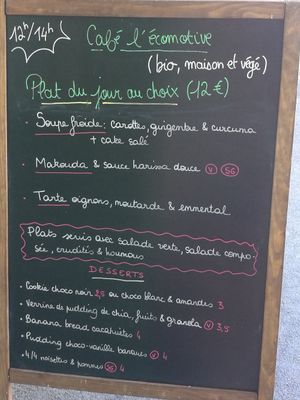 12h/14h
Café l'écomotive
(bio, maison et végé)
Plat du jour au choix (12 €)
• Soupe froide : carottes, gingembre & curcuma
+ cake salé
• Makouda & sauce harissa douce V SG
• Tarte oignons, moutarde & emmental
Plats servis avec salade verte, salade compo-
sée, crudités & houmous
DESSERTS
• Cookie choco noir 2,5 ou choco blanc & amandes 3
• Verrine de pudding de chia, fruits & granola V 3,5
• Banana bread, cacahuètes 4
• Pudding choco-vanille bananes V 4
• 4/4 noisettes & pommes SG 4